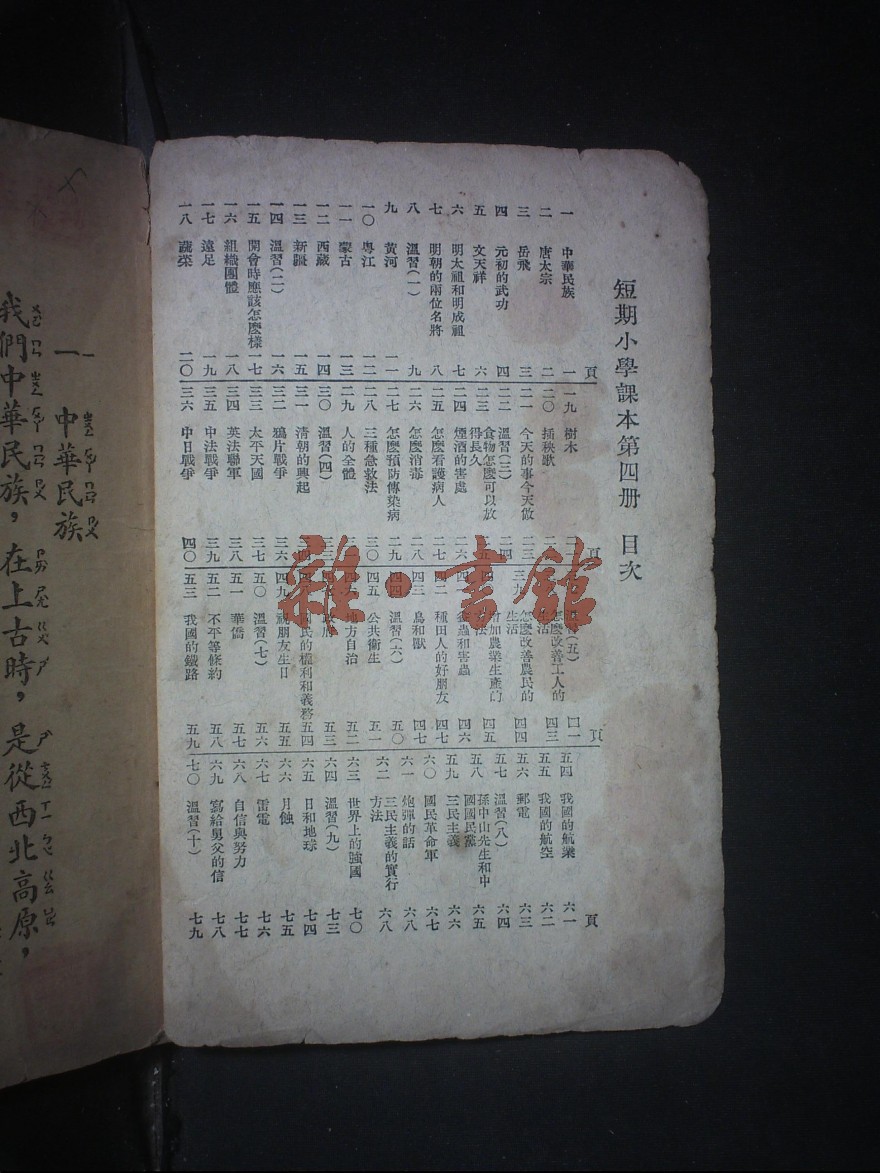 短期小學課本第四册 目次
頁
一 中華民族 一
二 唐太宗 二
三 岳飛 三
四 元初的武功 四
五 文天祥 六
六 明太祖和明成祖 七
七 明朝的兩位名將 八
八 溫習(一) 九
九 黃河 一一
一〇 粵江 一二
一一 蒙古 一三
一二 西藏 一四
一三 新疆 一五
一四 溫習(二) 一六
一五 開會時應該怎麼樣 一七
一六 組織團體 一八
一七 遠足 一九
一八 蔬菜 二〇
頁
一九 樹木
二〇 插秧歌
二一 今天的事今天做 二三
二二 溫習(三) 二四
二三 食物怎麼可以放
得長久
二四 煙酒的害處 二六
二五 怎麼看護病人 二七
怎麼消毒 二八
二七 怎麼預防傳染病 二九
二八 三種急救法 三〇
二九 人的全體
三〇 溫習(四) 三三
三一 清朝的興起
三二 鴉片戰爭 三六
三三 太平天國 三七
三四 英法聯軍 三八
三五 中法戰爭 三九
三六 中日戰爭 四〇
頁
(五) 四一
怎麼改善工人的
生活 四三
三九 怎麼改善農民的
生活 四四
加農業生產的
法 四五
蟲和害蟲 四六
四二 種田人的好朋友 四七
四三 鳥和獸 四七
四四 溫習(六) 五〇
四五 公共衛生 五一
地方自治 五二
政府 五三
民的權利和義務 五四
四九 祝朋友生日 五五
五〇 溫習(七) 五六
五一 華僑 五七
五二 不平等條約 五八
五三 我國的鐵路 五九
頁
五四 我國的航業 六一
五五 我國的航空 六二
五六 郵電 六三
五七 溫習(八) 六四
五八 孫中山先生和中
國國民黨 六五
五九 三民主義 六六
六〇 國民革命軍 六七
六一 炮彈的話 六八
六二 三民主義的實行
方法 六八
六三 世界上的強國 七〇
六四 溫習(九) 七三
六五 日和地球 七四
六六 月蝕 七五
六七 雷電 七六
六八 自信與努力 七七
六九 寫給舅父的信 七八
七〇 溫習(十) 七九
一 中華民族
我們中華民族，在上古時，是從西北高原，
雜·書館